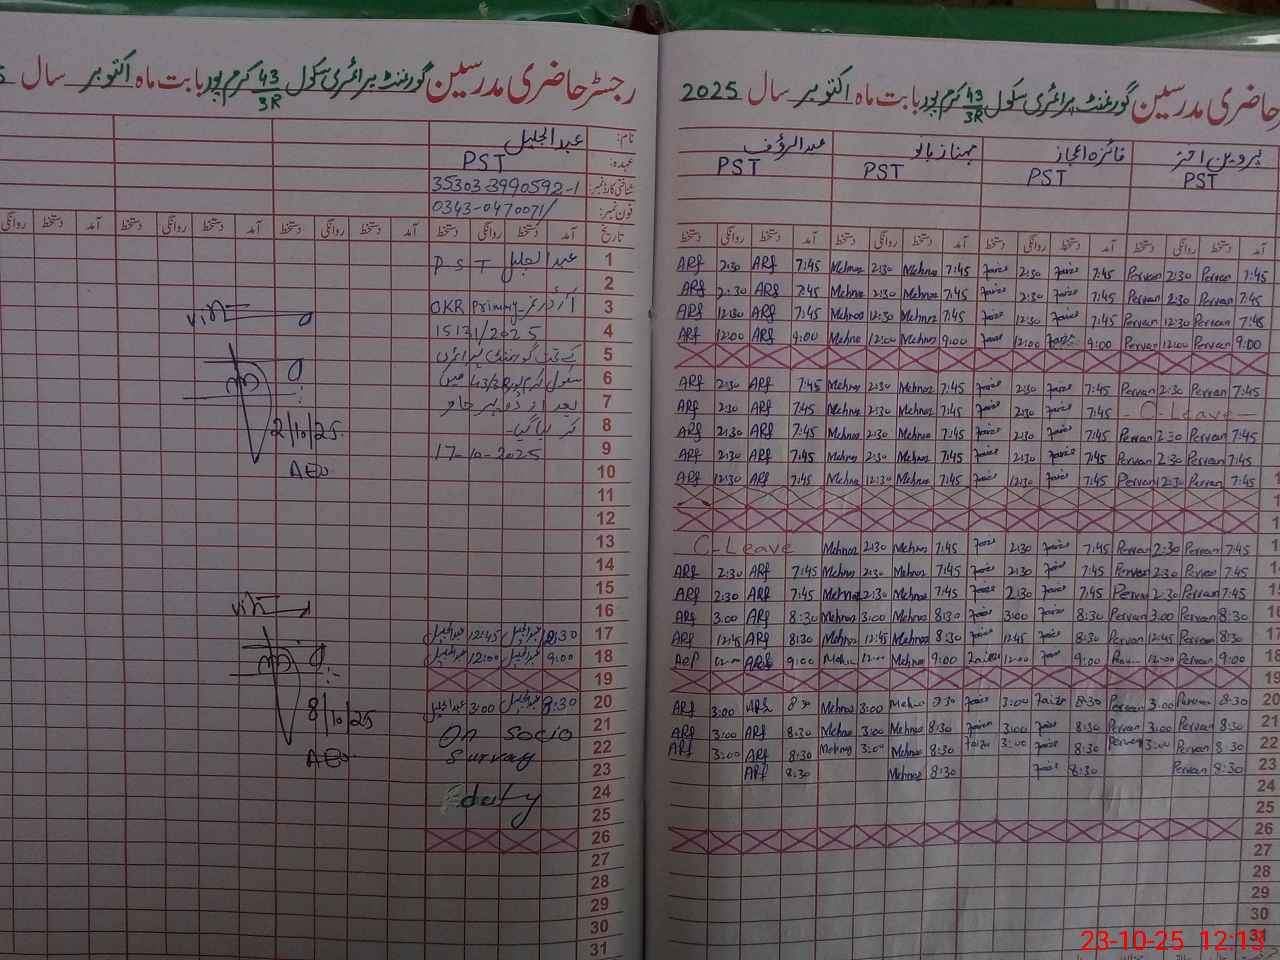 رجسٹر حاضری مدرسین گورنمنٹ پرائمری سکول 43/3R کرم پور بابت ماہ اکتوبر سال
نام: عبدالجلیل
عہدہ: PST
شناختی کارڈ نمبر: 35303-3990592-1
فون نمبر: 0343-0470071/
تاریخ آمد دستخط روانگی دستخط آمد دستخط روانگی دستخط آمد دستخط روانگی دستخط آمد دستخط روانگی
1 عبدالجلیل P S T
2
3 آرڈر نمبر OKR Primmy
4 15131/2025
5 کے تحت گورنمنٹ پرائمری
6 سکول کرم پور 43/3R میں
7 بعد از دوپہر
8 کر لیا گیا-
9 17-10-2025
10
11
12
13
14
15
16
17 عبدالجلیل 12:45 عبدالجلیل 8:30
18 عبدالجلیل 12:00 عبدالجلیل 9:00
19
20 عبدالجلیل 3:00 عبدالجلیل 8:30
21 On Socio
22 Survay
23
24 duty
25
26
27
28
29
30
31
2/10/25
AEO
8/10/25
AEO
حاضری مدرسین گورنمنٹ پرائمری سکول 43/3R کرم پور بابت ماہ اکتوبر سال 2025
عبدالرؤف مہناز بانو فائزہ اعجاز پروین اختر
PST PST PST PST
دستخط روانگی دستخط آمد دستخط روانگی دستخط آمد دستخط روانگی دستخط آمد دستخط روانگی دستخط آمد
ARf 2:30 ARf 7:45 Mehnaz 2:30 Mehnaz 7:45 Faiza 2:30 Faiza 7:45 Pervan 2:30 Pervan 7:45
ARf 2:30 ARf 7:45 Mehnaz 2:30 Mehnaz 7:45 Faiza 2:30 Faiza 7:45 Pervan 2:30 Pervan 7:45
ARf 12:30 ARf 7:45 Mehnaz 12:30 Mehnaz 7:45 Faiza 12:30 Faiza 7:45 Pervan 12:30 Pervan 7:45
ARf 12:00 ARf 9:00 Mehnaz 12:00 Mehnaz 9:00 Faiza 12:00 Faiza 9:00 Pervan 12:00 Pervan 9:00
ARf 2:30 ARf 7:45 Mehnaz 2:30 Mehnaz 7:45 Faiza 2:30 Faiza 7:45 Pervan 2:30 Pervan 7:45
ARf 2:30 ARf 7:45 Mehnaz 2:30 Mehnaz 7:45 Faiza 2:30 Faiza 7:45 - C-Leave -
ARf 2:30 ARf 7:45 Mehnaz 2:30 Mehnaz 7:45 Faiza 2:30 Faiza 7:45 Pervan 2:30 Pervan 7:45
ARf 2:30 ARf 7:45 Mehnaz 2:30 Mehnaz 7:45 Faiza 2:30 Faiza 7:45 Pervan 2:30 Pervan 7:45
ARf 12:30 ARf 7:45 Mehnaz 12:30 Mehnaz 7:45 Faiza 12:30 Faiza 7:45 Pervan 12:30 Pervan 7:45
C-Leave Mehnaz 2:30 Mehnaz 7:45 Faiza 2:30 Faiza 7:45 Pervan 2:30 Pervan 7:45
ARf 2:30 ARf 7:45 Mehnaz 2:30 Mehnaz 7:45 Faiza 2:30 Faiza 7:45 Pervan 2:30 Pervan 7:45
ARf 2:30 ARf 7:45 Mehnaz 2:30 Mehnaz 7:45 Faiza 2:30 Faiza 7:45 Pervan 2:30 Pervan 7:45
ARf 3:00 ARf 8:30 Mehnaz 3:00 Mehnaz 8:30 Faiza 3:00 Faiza 8:30 Pervan 3:00 Pervan 8:30
ARf 12:45 ARf 8:30 Mehnaz 12:45 Mehnaz 8:30 Faiza 12:45 Faiza 8:30 Pervan 12:45 Pervan 8:30
ARf 12:00 ARf 9:00 Mehnaz 12:00 Mehnaz 9:00 Faiza 12:00 Faiza 9:00 Pervan 12:00 Pervan 9:00
ARf 3:00 ARf 8:30 Mehnaz 3:00 Mehnaz 8:30 Faiza 3:00 Faiza 8:30 Pervan 3:00 Pervan 8:30
ARf 3:00 ARf 8:30 Mehnaz 3:00 Mehnaz 8:30 Faiza 3:00 Faiza 8:30 Pervan 3:00 Pervan 8:30
ARf 3:00 ARf 8:30 Mehnaz 3:00 Mehnaz 8:30 Faiza 3:00 Faiza 8:30 Pervan 3:00 Pervan 8:30
ARf 8:30 Mehnaz 8:30 Faiza 8:30 Pervan 8:30
23-10-25 12:13